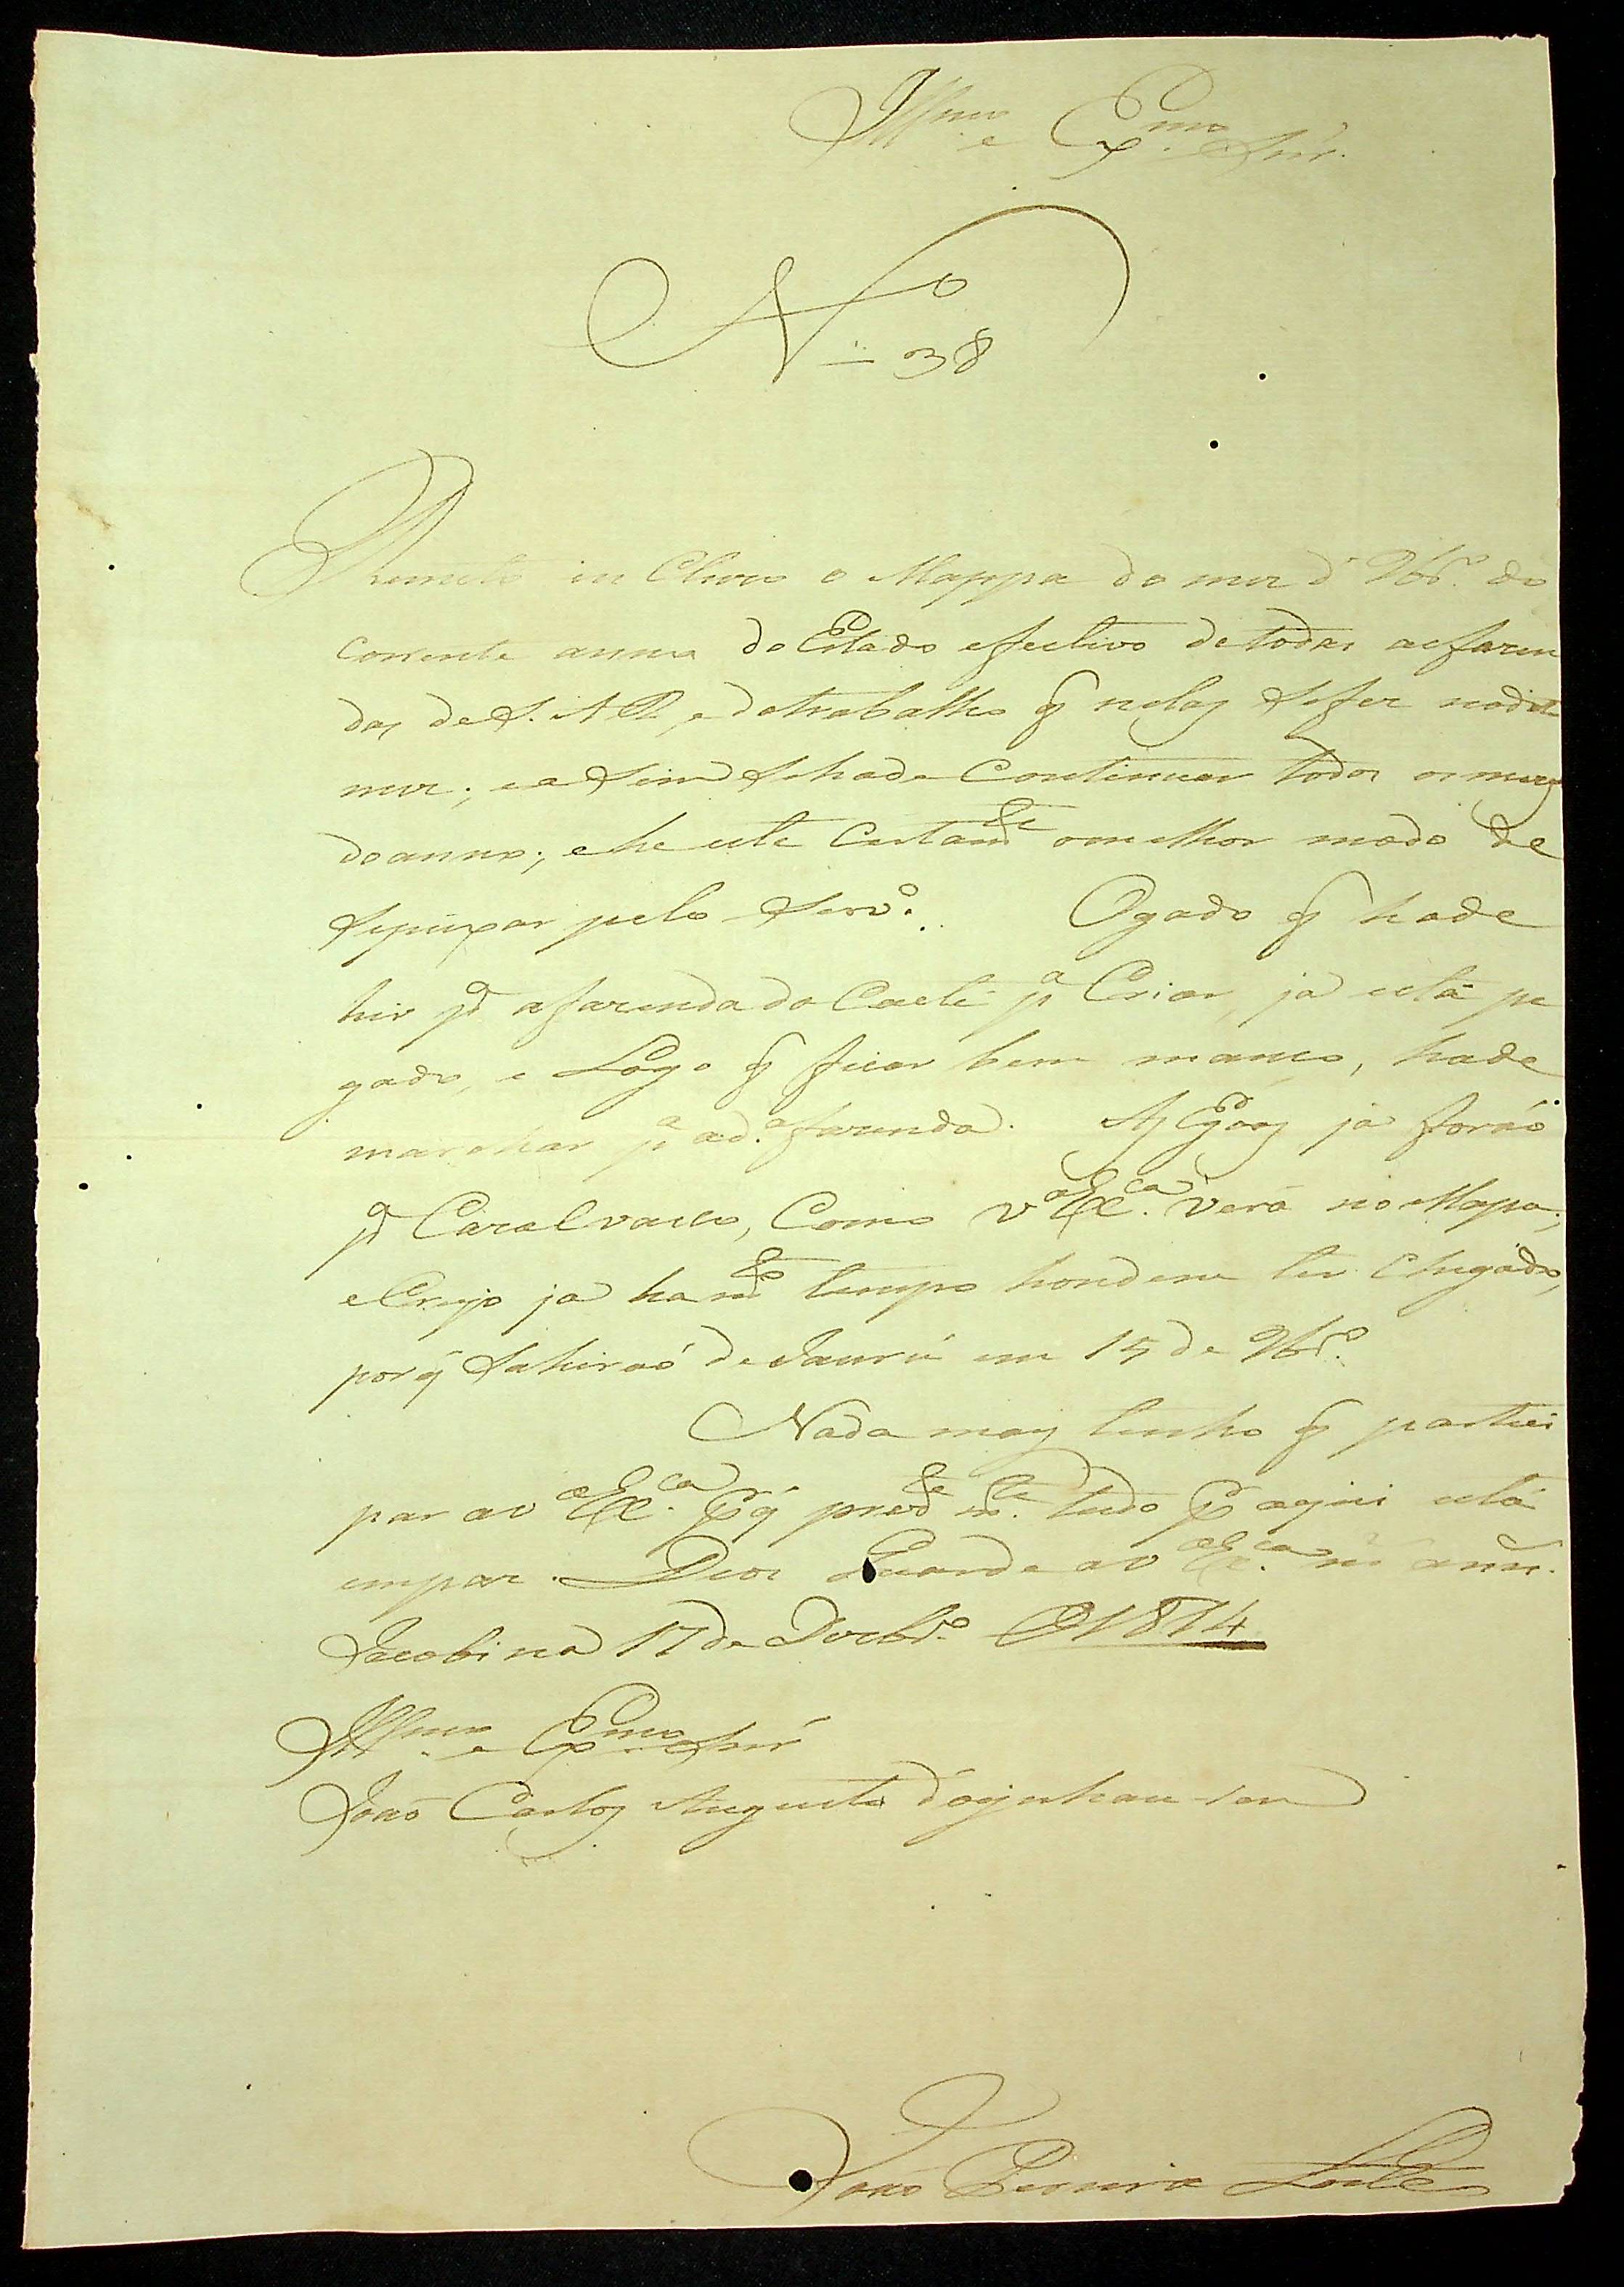 Illmo e Exmo Snr.
No 38
Remeto in Cluzo o Mappa do mez d' 9br.o do
Corrente anno do Estado efectivo de todas as fazen
das de S. A R, e do trabalho q nelas se fez no dito
mez; e asim se hade Continuar todos os mezes
do anno; e he este Certamte o melhor modo de
se puxar pelo serv.o. O gado q hade
hir pa a fazenda do Caeté pa Criar, já está pe
gado, e Logo q ficar bem manco, hade
marchar pa a d.a fazenda. As Egoas já forão
pa Cazalvasco, Como V Exca. verá no Mapa;
e Creyo já ha mto tempo hondem ter Chegado,
porq sahiraó de Jaurú em 15 de 9br.o
Nada mais tenho q partici
par a V Exca. tudo aqui está
em paz. Deos Guarde a V Exca. ms anns.
Jacobina 17 de Dezbr.o 1814
Illmo e Exmo Snr
João Carlos Augusto d'oeynhausen
João Pereira Leite